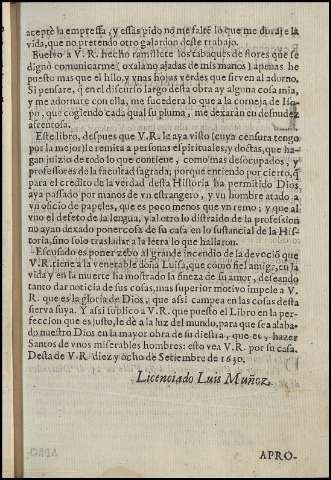 aceptè la empressa, y essas pido no me falte lo que me duraje la
vida, que no pretendo otro galardon deste trabajo.
Buelvo a V. R. hecho ramillete los tabaques de flores que se
dignò comunicarme (oxala no ajadas de mis manos) apenas he
puesto mas que el hilo, y vnas hojas verdes que sirven al adorno.
Si pensare, q̃ en el discurso largo desta obra ay alguna cosa mia,
y me adornare con ella, me sucedera lo que a la corneja de Iso-
po, que cogiendo cada qual su pluma, me dexarán en desnudez
afrentosa.
Este libro, despues que V. R. le aya visto (cuya censura tengo
por la mejor) le remita a personas espirituales, y doctas, que ha-
gan juizio de todo lo que contiene, como mas desocupados, y
professores de la facultad sagrada; porque entiendo por cierto, q̃
para el credito de la verdad desta Historia ha permitido Dios,
aya passado por manos de vn estrangero, y vn hombre atado a
vn oficio de papeles, que es poco menos que vn remo; y que al
vno el defeto de la lengua, y al otro lo distraido de la profession
no ayan dexado poner cosa de su casa en lo sustancial de la His-
toria, sino solo trasladar a la letra lo que hallaron.
Escusado es poner zebo al grande incendio de la devociõ que
V. R. tiene a la venerable doña Luisa, que como fiel amiga, en la
vida y en la muerte ha mostrado la fineza de su amor, deseando
tanto dar noticia de sus cosas, mas superior motivo impele a V.
R. que es la gloria de Dios, que assi campea en las cosas desta
sierva suya. Y assi suplico a V. R. que puesto el Libro en la per-
feccion que es justo, le dè a la luz del mundo, para que sea alaba-
do nuestro Dios en la mayor obra de su diestra, que es, hazer
Santos de vnos miserables hombres: esto vea V. R. por su casa.
Desta de V. R. diez y ocho de Setiembre de 1630.
Licenciado Luis Muñoz.
APRO-